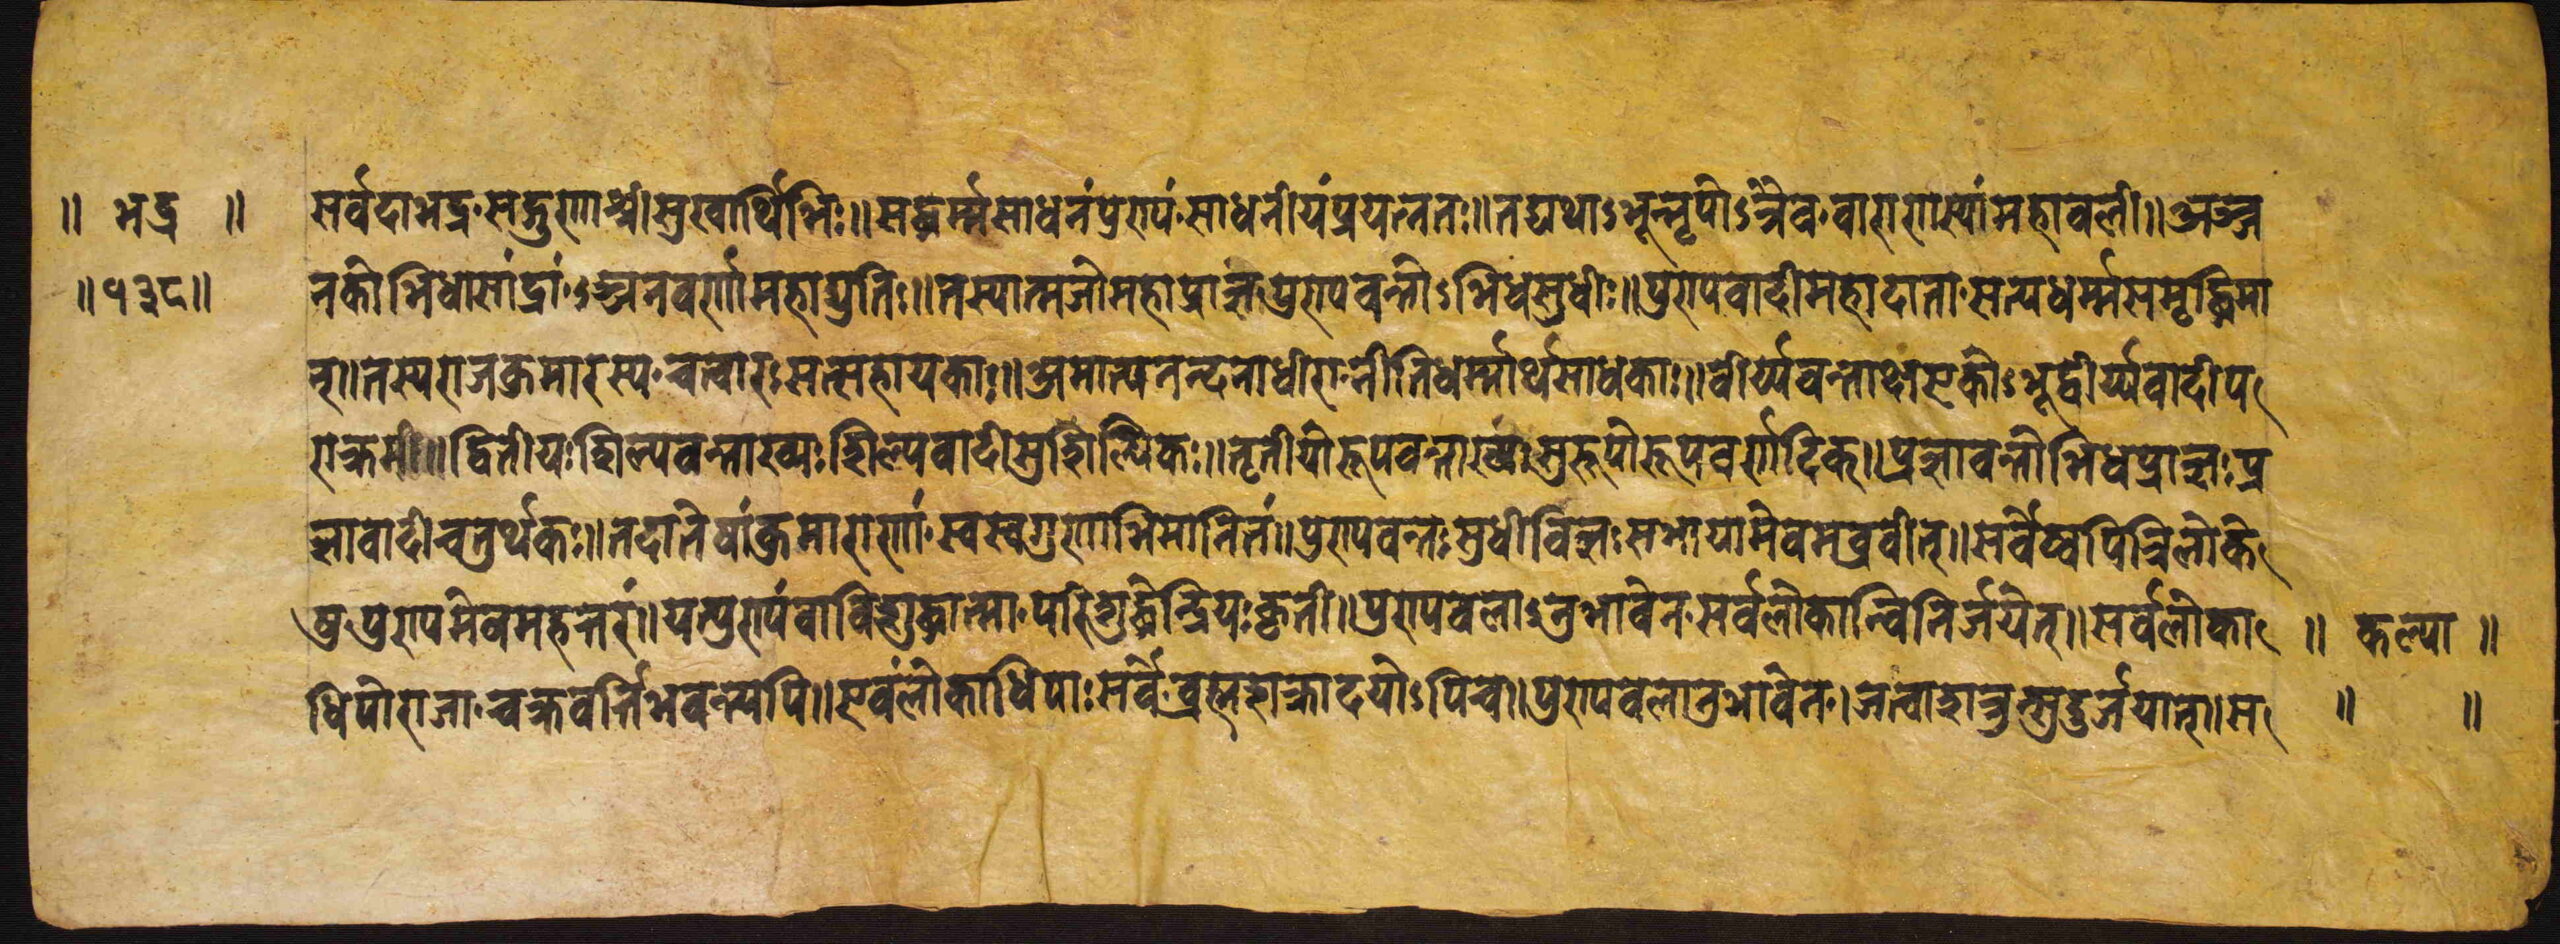 ॥ भद्र ॥ सर्वदाभद्र सद्गुणश्रीसुखार्थिभिः॥सद्धर्म्मसाधनंपुण्यं साधनीयंप्रयत्नतः॥तद्यथाऽभून्नृपोऽत्रैव वाराणस्यांमहाबली॥अञ्ज
॥१३८॥ नकोभिधासांद्रां ऽञ्जनवर्णोमहाद्युतिः॥तस्यात्मजोमहाप्राज्ञ पुण्यवन्तोऽभिधसुधीः॥पुण्यवादीमहादाता सत्यधर्म्मसमृद्धिमा
न्॥तस्यराजकुमारस्य चत्वारः सत्सहायकाः॥अमात्यनन्दनाधीरा नीतिधर्म्मार्थसाधकाः॥वीर्य्यवन्ताख्य एकोऽभूद्वीर्य्यवादीप
राक्रमी॥द्वितीयः शिल्पवन्ताख्यः शिल्पवादीसुशिल्पिकः॥तृतीयोरूपवन्ताख्यो सुरूपोरूपवर्णादिक्॥प्रज्ञावन्तोभिधप्राज्ञः प्र
ज्ञावादीचतुर्थकः॥तदातेषांकुमाराणां स्वस्वगुणाभिमानिनं॥पुण्यवन्तः सुधीर्विज्ञः सभायामेवमब्रवीत्॥सर्वेष्वपित्रिलोके
षु पुण्यमेवमहत्तरं॥यत्पुण्यंवाविशुद्धात्मा परिशुद्धेन्द्रियः कृती॥पुण्यबलाऽनुभावेन सर्वलोकान्विनिर्जयेत्॥सर्वलोका ॥ कल्पा ॥
धिपोराजा चक्रवर्त्तिभवन्त्यपि॥एवंलोकाधिपाः सर्वे ब्रह्मशक्रादयोऽपिच॥पुण्यबलानुभावेन।जत्वाशत्रुन्सुदुर्जयान्॥स ॥ ॥